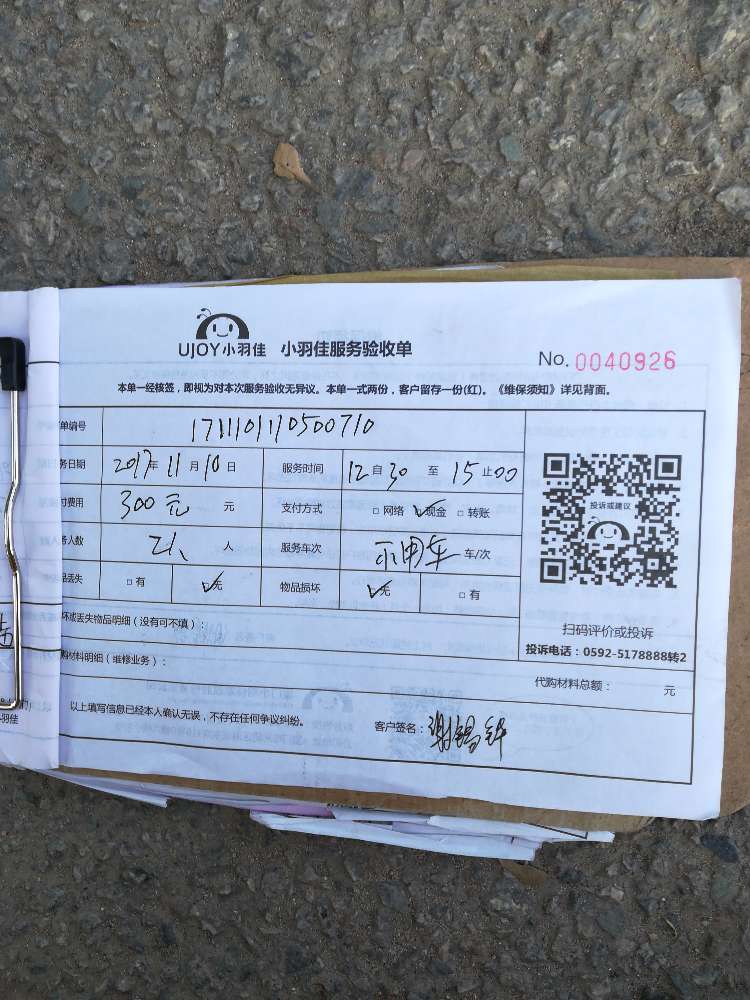 UJOY小羽佳 小羽佳服务验收单
No. 0040926
本单一经核签，即视为对本次服务验收无异议。本单一式两份，客户留存一份(红)。《维保须知》详见背面。
单编号 171110110500710
务日期 2017年 11月 10日 服务时间 12自30至15止00
付费用 300元 元 支付方式 □网络 ☑现金 □转账
务人数 2人 人 服务车次 不用车 车/次
品丢失 □有 ☑无 物品损坏 ☑无 □有
坏或丢失物品明细（没有可不填）：
购材料明细（维修业务）：
代购材料总额： 元
以上填写信息已经本人确认无误，不存在任何争议纠纷。 客户签名：
投诉或建议
扫码评价或投诉
投诉电话：0592-5178888转2
羽佳